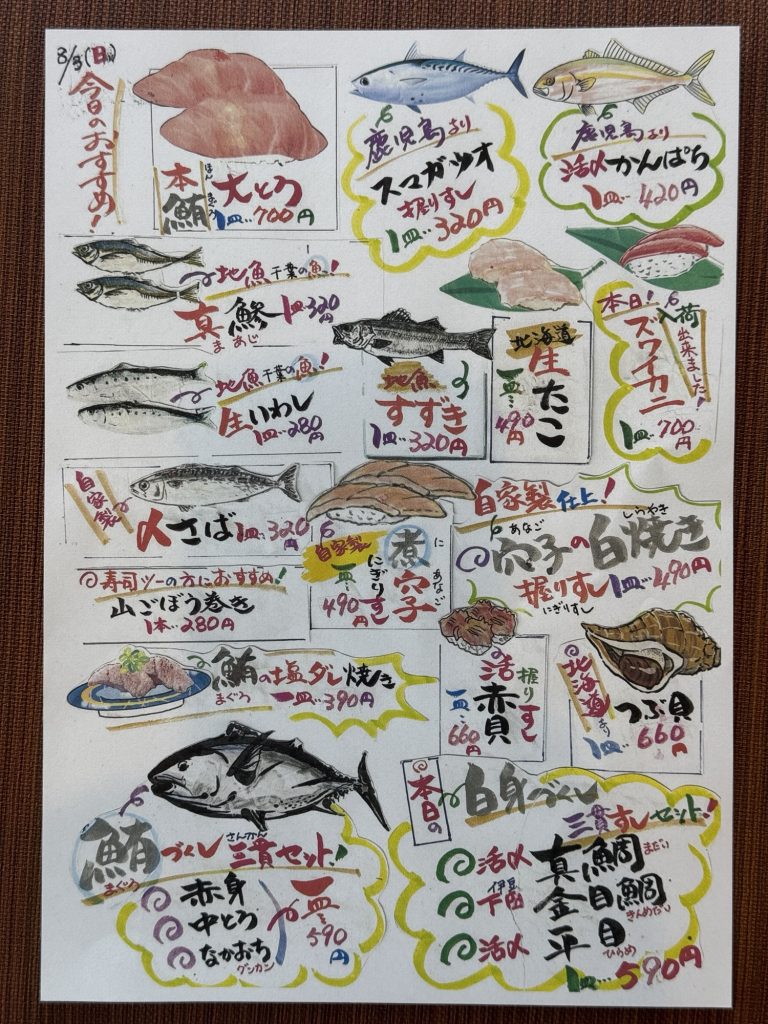 3/3(日)
今日のおすすめ!
本鮪 大とろ
ほんまぐろ
1皿…700円
鹿児島より
スマガツオ
握りすし
1皿…320円
鹿児島より
活〆かんぱち
1皿…420円
地魚 千葉の魚!
真鯵 1皿320円
まあじ
地魚 千葉の魚!
生いわし
1皿…280円
地魚
すずき
1皿…320円
北海道
生たこ
一皿…490円
本日!入荷出来ました!
ズワイカニ
1皿…700円
自家製
〆さば 1皿…320円
寿司ツーの方におすすめ!
山ごぼう巻き
1本…280円
自家製
煮穴子
に あなご
にぎりすし
一皿…490円
自家製仕上!
あなご しらやき
穴子の白焼き
握りすし 1皿…490円
にぎりすし
鮪の塩ダレ焼き
まぐろ
一皿…390円
活赤貝
握りすし
一皿…660円
北海道より
つぶ貝
1皿…660円
鮪づくし 三貫セット!
まぐろ さんかん
赤身
中とろ
なかおち
グンカン
一皿…590円
本日の
白身づくし
三貫すしセット!
活〆 真鯛 まだい
伊豆
下田 金目鯛 きんめだい
活〆 平目 ひらめ
1皿…590円